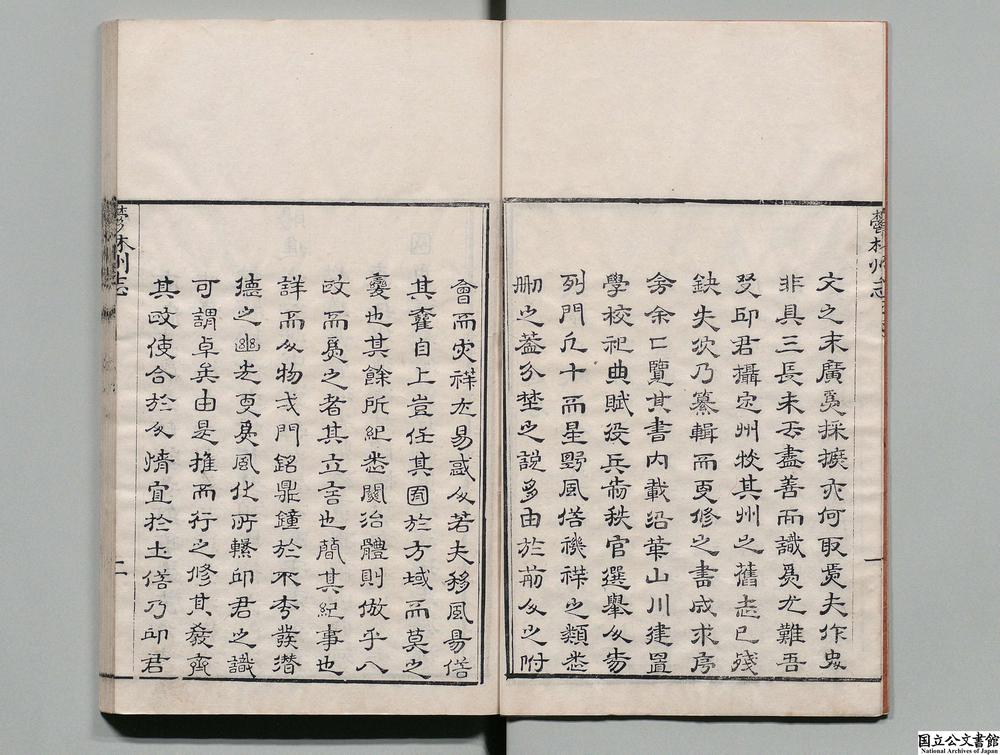 鬱林州志
文之末廣爲採摭亦何取焉夫作史
非具三長未云盡善而識爲尤難吾
友邱君攝定州牧其州之舊志已殘
缺失次乃纂輯而更修之書成求序
余覽其書內載沿革山川建置
學校祀典賦役兵防秩官選舉人物
列門凡十而星野風俗禨祥之類悉
刪之蓋分埜之說多由於前人之附
一
會而灾祥尤易惑人若夫移風易俗
其權自上豈任其囿於方域而莫之
變也其餘所紀悉關治體則倣乎八
政而爲之者其立言也簡其紀事也
詳而人物弌門銘鼎鐘於不朽發潛
德之幽光更爲風化所繫邱君之識
可謂卓矣由是推而行之修其教齊
其政使合於人情宜於土俗乃邱君
鬱林州志
二
国立公文書館
National Archives of Japan